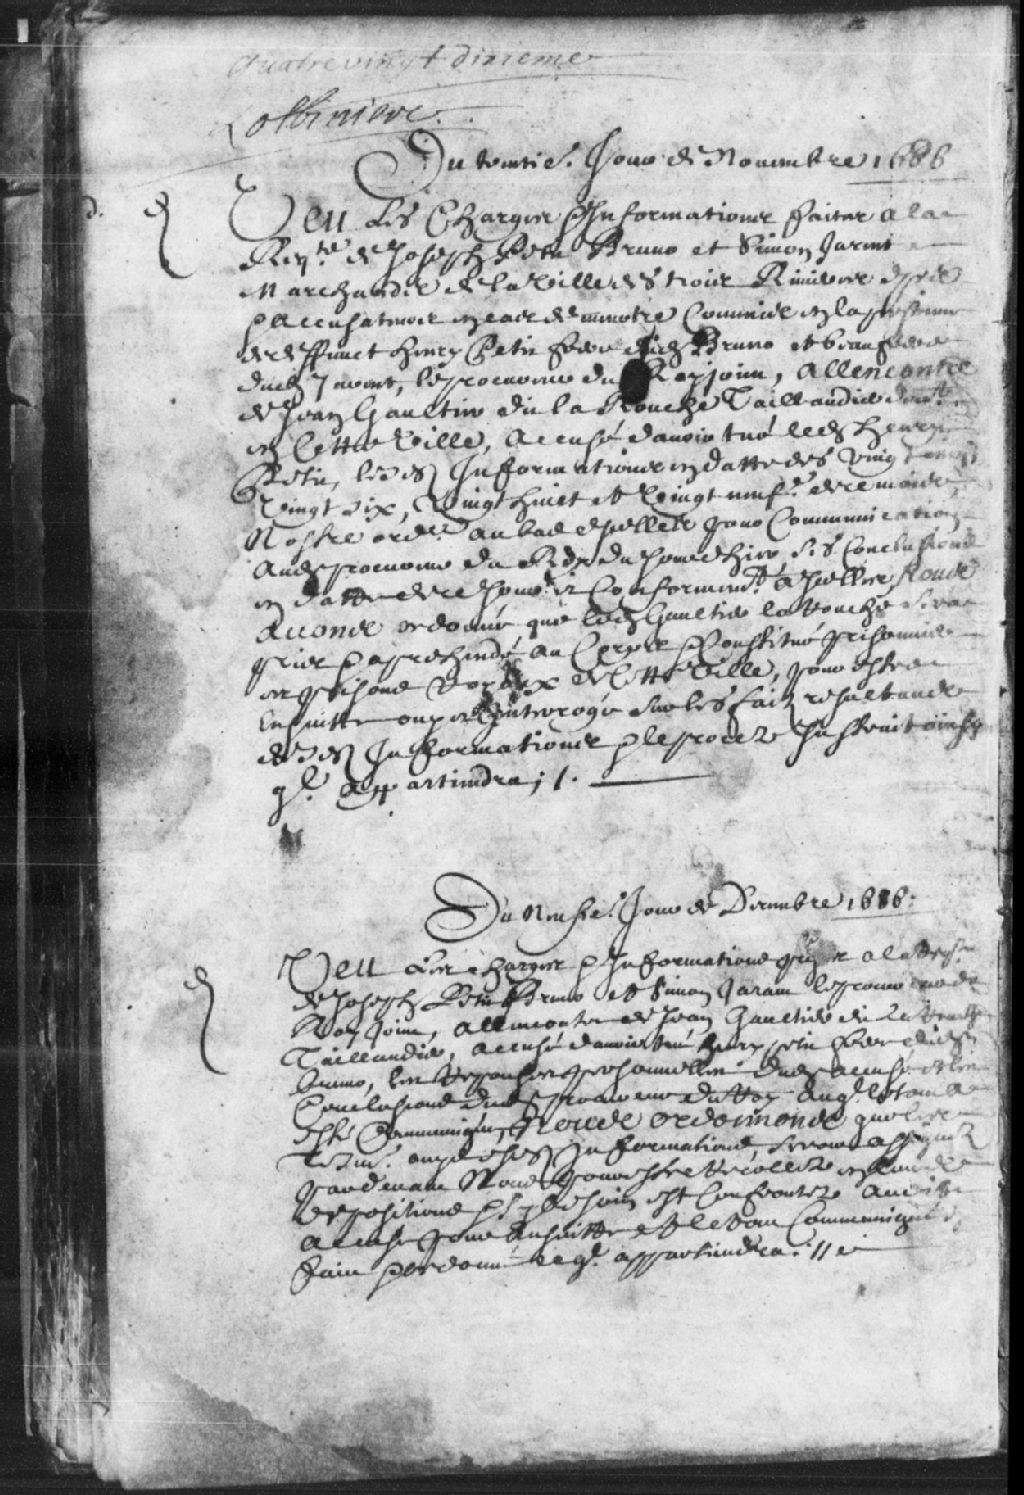 quatre vingt dixieme
Lotbiniere
Du trentie. Jour de Novembre 1686
d.
Veu Les Charges & Informations faites a la
Req.te de Joseph Petit Bruno et Simon Jarent
Marchands de la ville des trois Rivieres
accusateurs en cas de meurtre Commis en la personne
de deffunct henry Petit frere dud. Bruno et beaufrere
dud. Jarent, le procureur du Roy joint, allencontre
de Jean Gaultier dit la Rouche Taillandier demt.
en Cette Ville, accusé davoir tué led. henry
Petit, lesd. Informations en datte des vingt
vingt six, Vingt huict et Vingt neufe. de ce mois
Nostre ordce. au bas dicelles pour Communication
aud. procureur du Roy du jour dhier Ses Conclusions
en datte de ce jour et Conformemt. a icelles, Nous
Avons ordonné que led. Gaultier la rouche sera
pris & aprehendé au Corps & Constitué prisonnier
es prisons Royaux de Cette Ville, pour estre
Ensuitte ouy et Interrogé sur les faits resultans
desd. Informations & le procez Instruit ainsy
ql. appartiendra; /.
Du Neufie. Jour de Decembre 1686.
Veu Les charges & Informations a la Reqte.
de Joseph Petit Bruno et Simon Jarent le procureur du
Roy Joint, allencontre de Jean Gaultier dit La Rouche
Taillandier, accusé davoir tué henry petit frere dud.
Bruno, les Responses personnelles dud. accusé et les
Conclusions dud. procureur du Roy auql. le tout a
esté Communiqué, Nous ordonnons que les
Tesmi. ouys esd. Informations, seront assignez
pardevant Nous pour estre Recollez en leurs
depositions & sy besoin est Confrontez aud.
accusé pour Ensuitte et le tout Communiqué
faire & ordonné ce ql. appartiendra. //